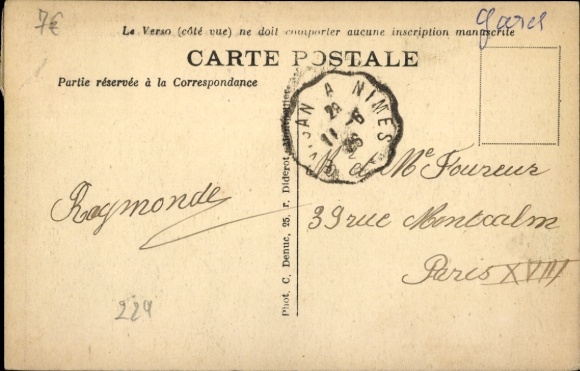 7€
Gard
Le Verso (côté vue) ne doit comporter aucune inscription manuscrite
CARTE POSTALE
Partie réservée à la Correspondance
VIGAN A NIMES
29 -6
11 26
Raymonde
224
Phot. C. Denuc, 25, r. Diderot, Montpellier
M. et Me Foureur
39 rue Montcalm
Paris XVIII